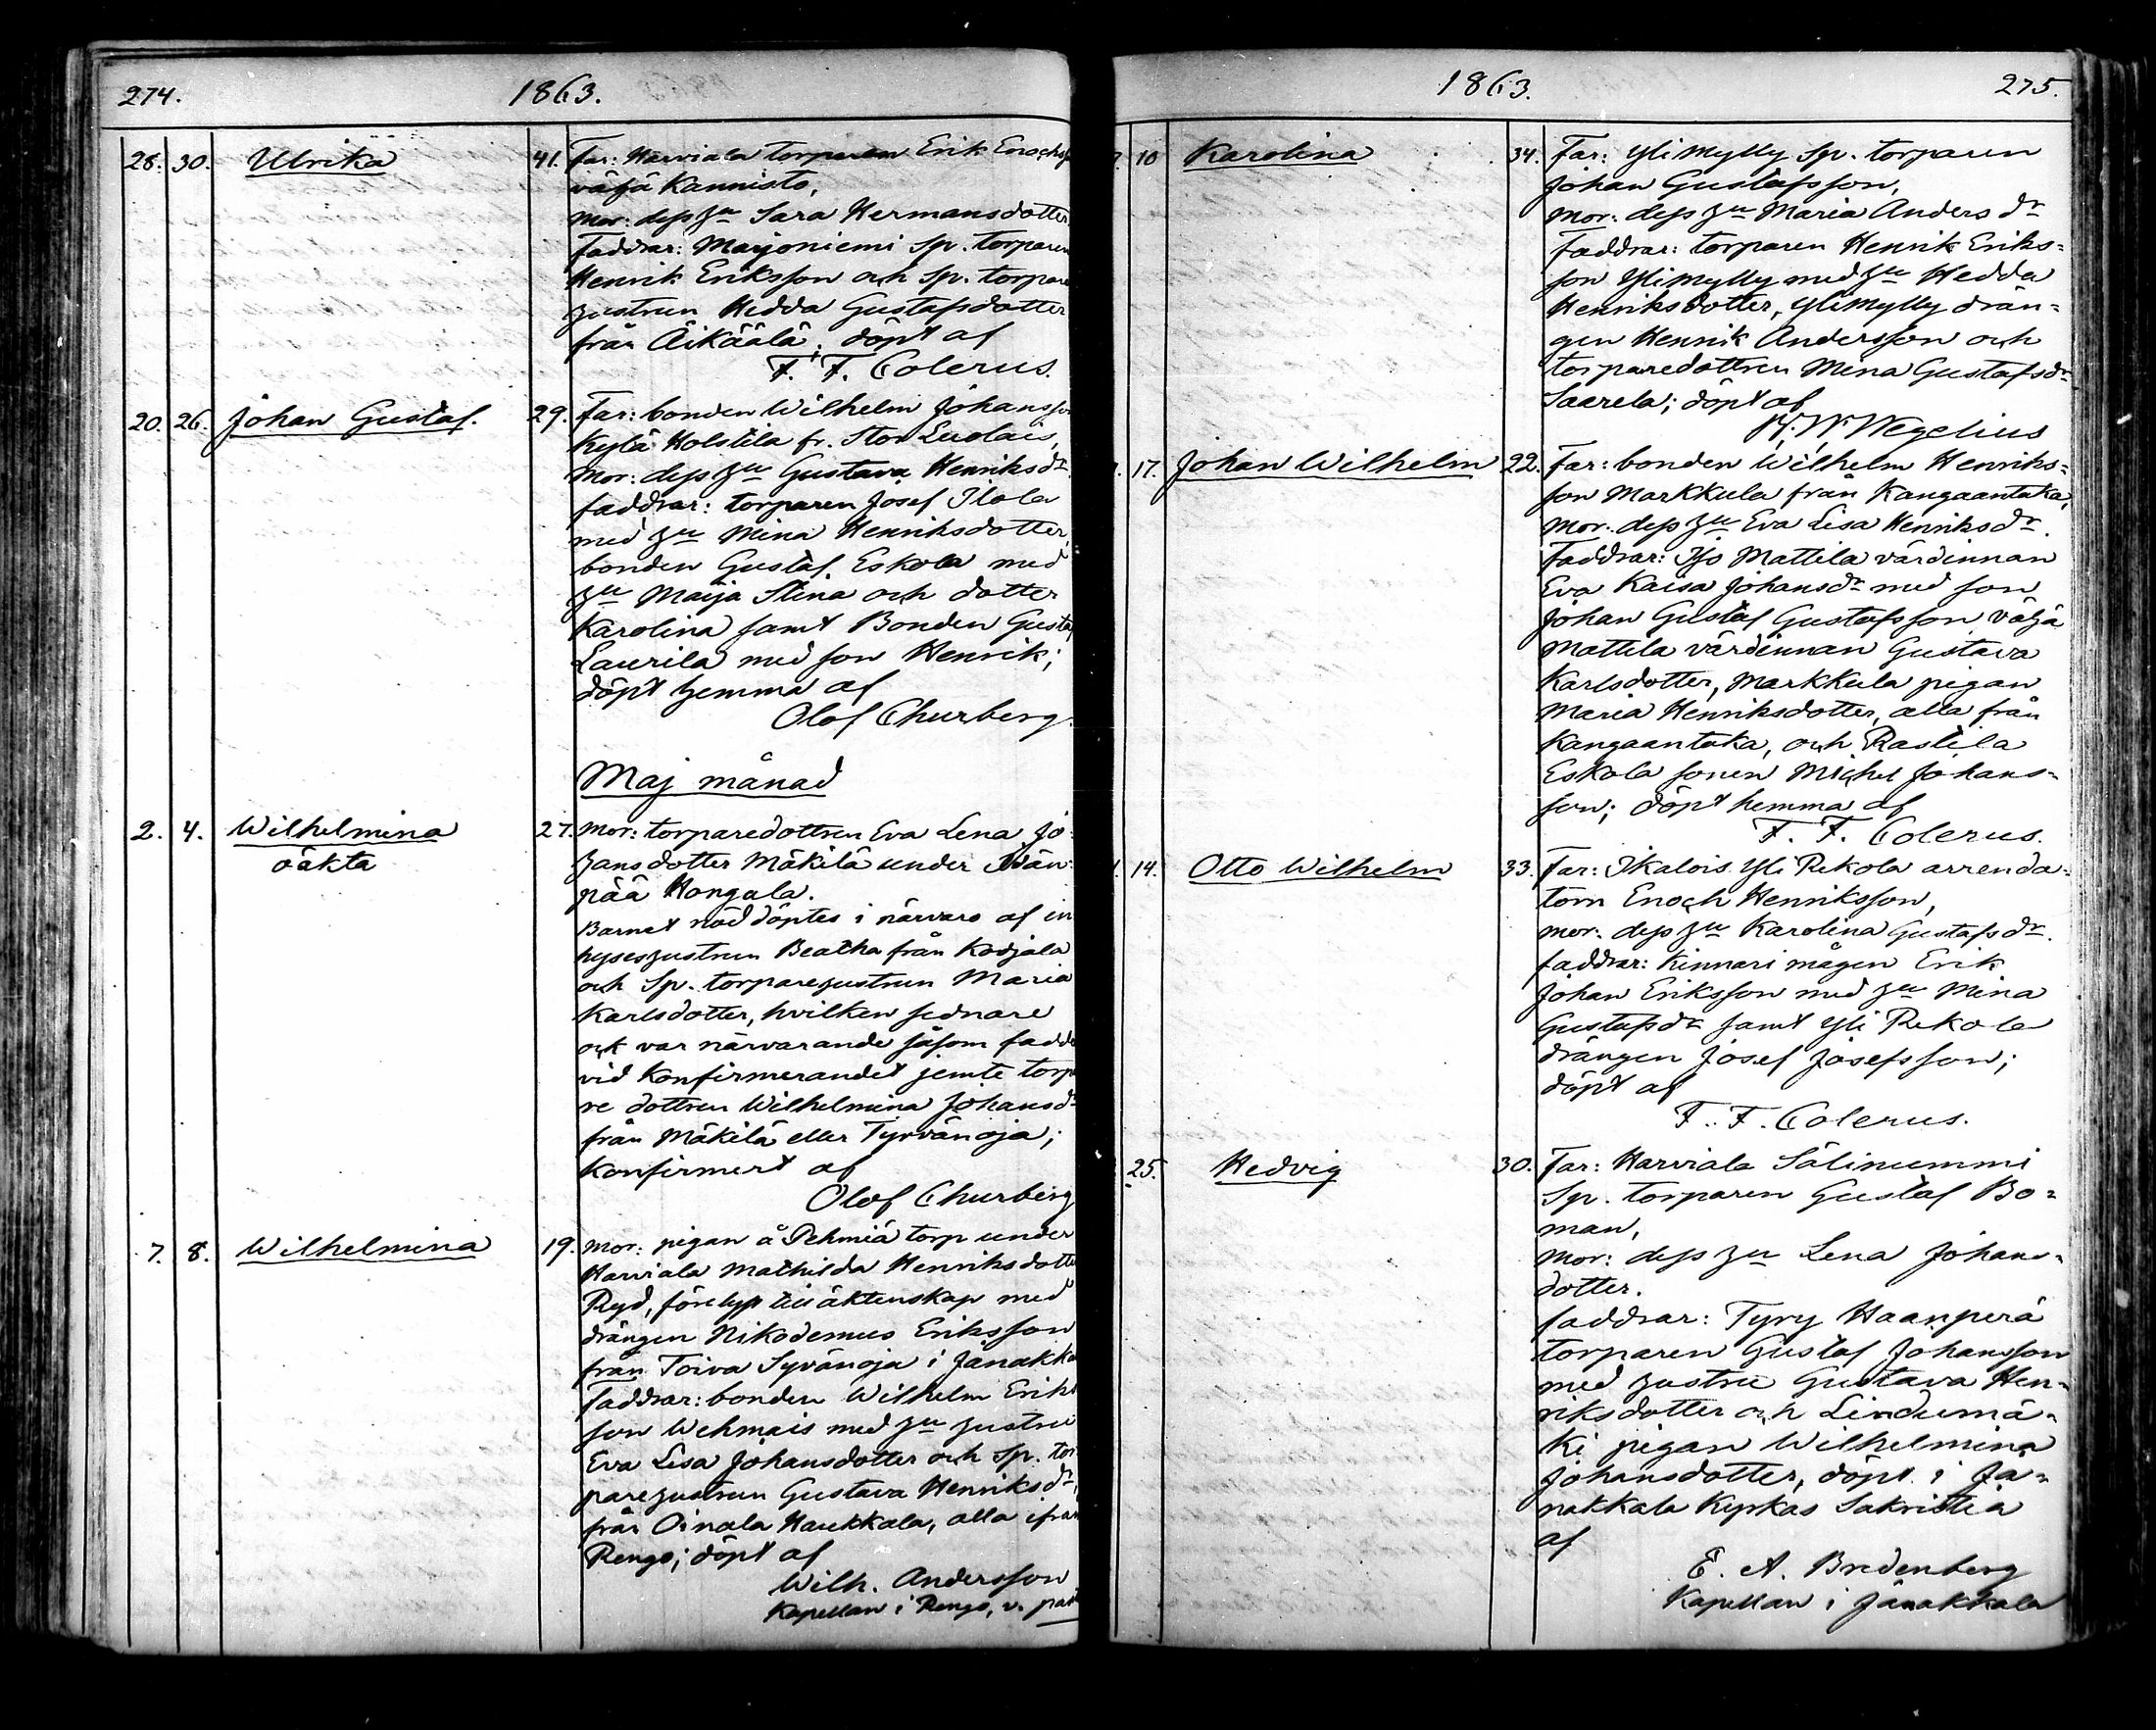 274.
1863.
28. 30. Ulrika 41. Far: Harviala torparen Erik Enochs
väjä Kannisto,
Mor: dess hu Sara Hermansdotter
Faddrar: Marjoniemi Sp. torparen
Henrik Eriksson och Sp. torpare
hustrun Hedda Gustafsdotter
från Äikäälä; döpt af
F. F. Colerus.
20. 26. Johan Gustaf. 29. Far: bonden Wilhelm Johansson
Kylä Holstila fr. Stor Luolais,
Mor: dess hu Gustava Henriksdr
faddrar: torparen Josef Ilola
med hu Mina Henriksdotter,
bonden Gustaf Eskola med
hu Maija Stina och dotter
Karolina samt Bonden Gustaf
Laurila med son Henrik;
döpt hemma af
Olof Churberg.
Maj månad
2. 4. Wilhelmina 27. Mor: torparedottren Eva Lena Jo=
oäkta
hansdotter Mäkilä under
pää Hongala.
Barnet nöddöptes i närvaro af in
hyseshustrun Beatha från Kodjala
och Sp. torparehustrun Maria
Karlsdotter, hvilken sednare
ock var närvarande såsom fadde
vid Konfirmerandet jemte torpa
re dottren Wilhelmina Johansdr
från Mäkilä eller Tyrvänoja;
Konfirmert af
Olof Churberg
7. 8. Wilhelmina 19. Mor: pigan å Pehmiä torp under
Harviala Mathilda Henriksdotte
Ryd, förelyst till äktenskap med
drängen Nikodemus Eriksson
från Toiva Syvänoja i Janakka
Faddrar: bonden Wilhelm Eriks
son Wehmais med hu hustru
Eva Lisa Johansdotter och Sp. tor
parehustrun Gustava Henriksdr,
från Oinala Haukkala, alla ifrån
Rengo; döpt af
Wilh. Andersson
Kapellan i Rengo, v. past
1863.
275.
10 Karolina 34. Far: Yli Mylly Sp. torparen
Johan Gustafsson,
Mor: dess hu Maria Anders dr
Faddrar: torparen Henrik Eriks=
son Ylimylly med hu Hedda
Henriksdotter, Ylimylly drän=
gen Henrik Andersson och
torparedottren Mina Gustafsdr
Saarela; döpt af
Wegelius
17. Johan Wilhelm 22. Far: bonden Wilhelm Henriks=
son Markkula från Kangaantaka,
Mor: dess hu Eva Lisa Henriksdr.
Faddrar: Iso Mattila värdinnan
Eva Kaisa Johansdr med son
Johan Gustaf Gustafsson väjä
Mattila värdinnan Gustava
Karlsdotter, Markkula pigan
Maria Henriksdotter, alla från
Kangaantaka, och Rastila
Eskola sonen Michel Johans=
son; döpt hemma af
F. F. Colerus.
14. Otto Wilhelm 33. Far: Ikalois Yli Rekola arrenda=
torn Enoch Henriksson,
mor: dess hu Karolina Gustafsdr.
faddrar: Kinnari mågen Erik
Johan Eriksson med hu Mina
Gustafsdr samt Yli Rekola
drängen Josef Josefsson;
döpt af
F. F. Colerus.
25. Hedvig 30. Far: Harviala Sälinummi
Sp. torparen Gustaf Bo=
man,
Mor: dess hu Lena Johans=
dotter.
faddrar: Tyry Haanperä
torparen Gustaf Johansson
med hustru Gustava Hen=
riksdotter och Lindumä=
ki pigan Wilhelmina
Johansdotter, döpt i Ja=
nakkala Kyrkas Sakristia
af
E. A. Bredenberg
Kapellan i Janakkala